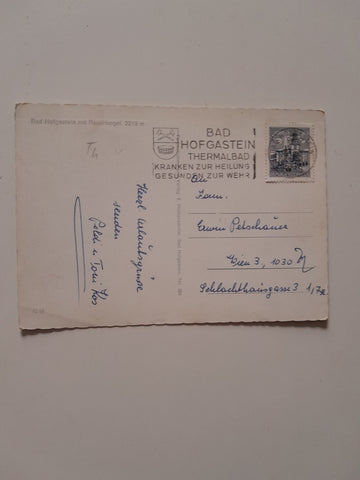 Bad Hofgastein mit Rauchkogel, 2216 m
BAD
HOFGASTEIN
THERMALBAD
KRANKEN ZUR HEILUNG
GESUNDEN ZUR WEHR
Herzl. Urlaubsgrüsse
senden
Poldi u Toni Kos
An
Fam.
Erwin Petschauer
Wien 3, 1030
Schlachthausgasse 3